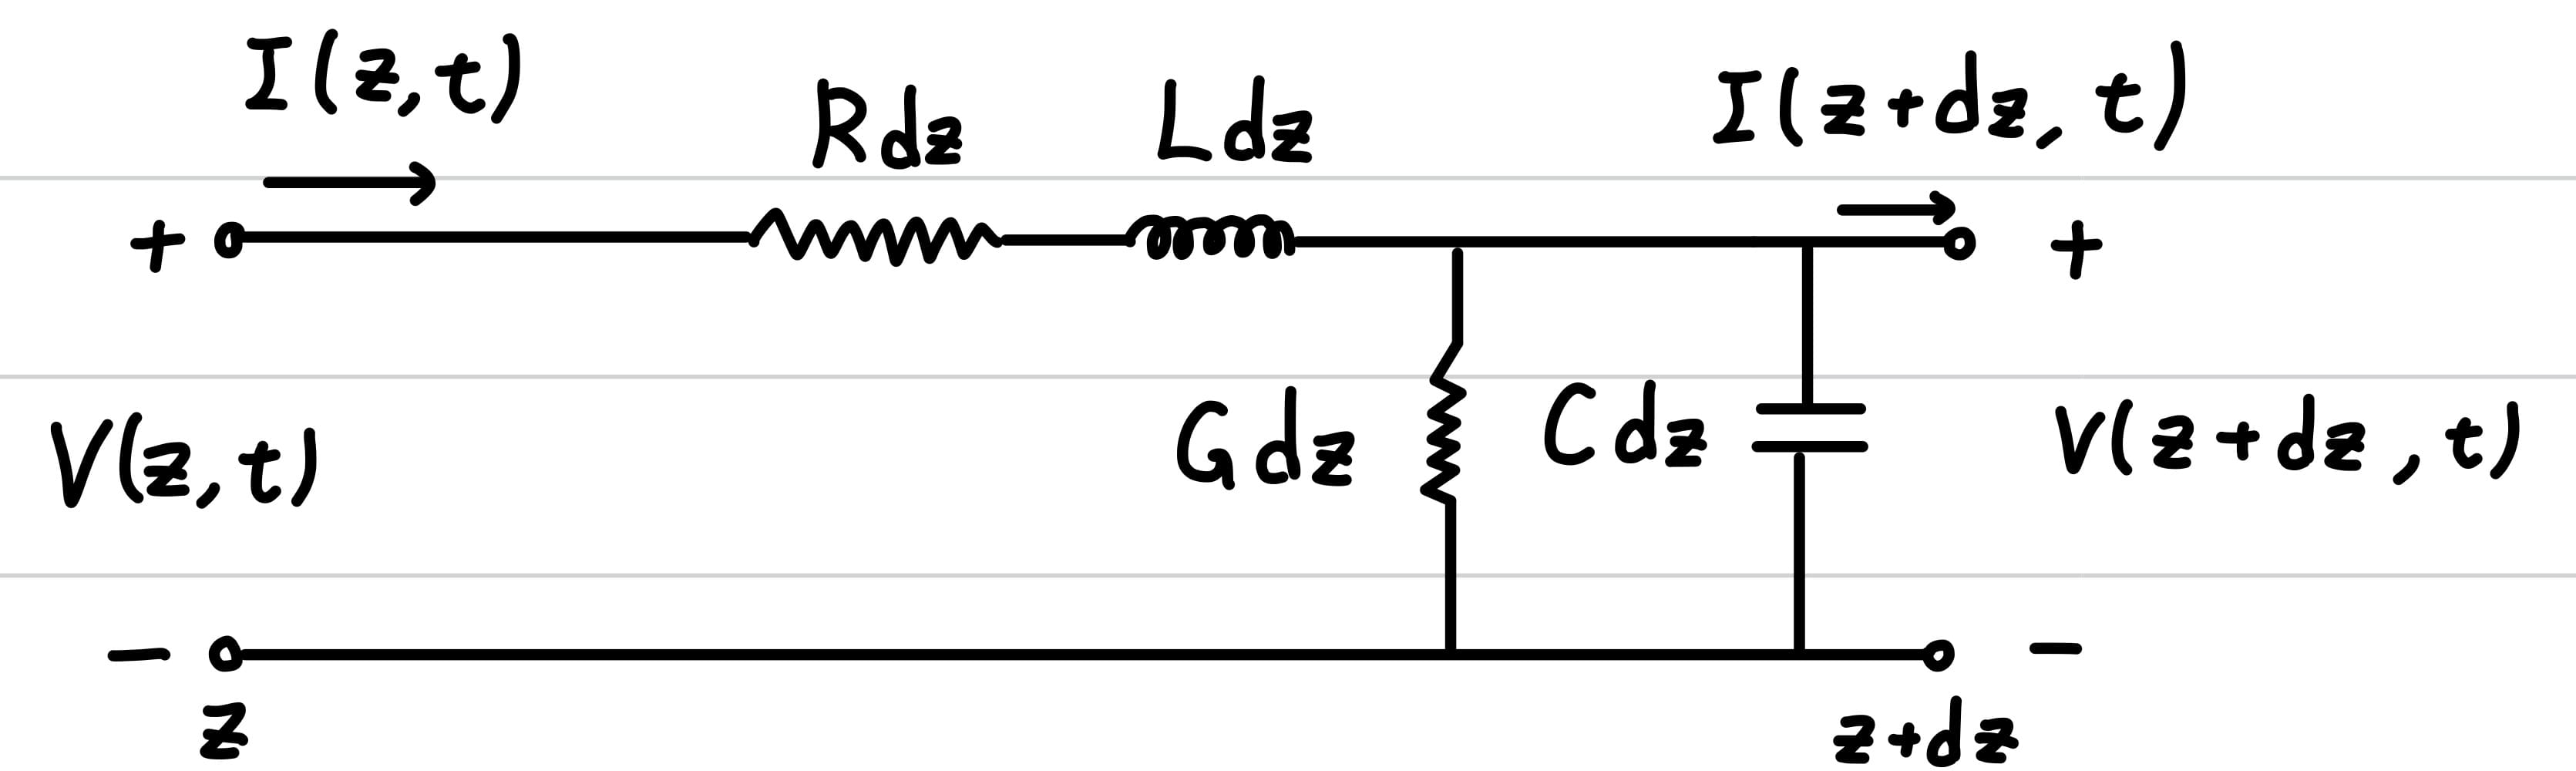 I(z,t)
Rdz
Ldz
I(z+dz, t)
+
+
V(z,t)
Gdz
Cdz
V(z+dz, t)
−
−
z
z+dz